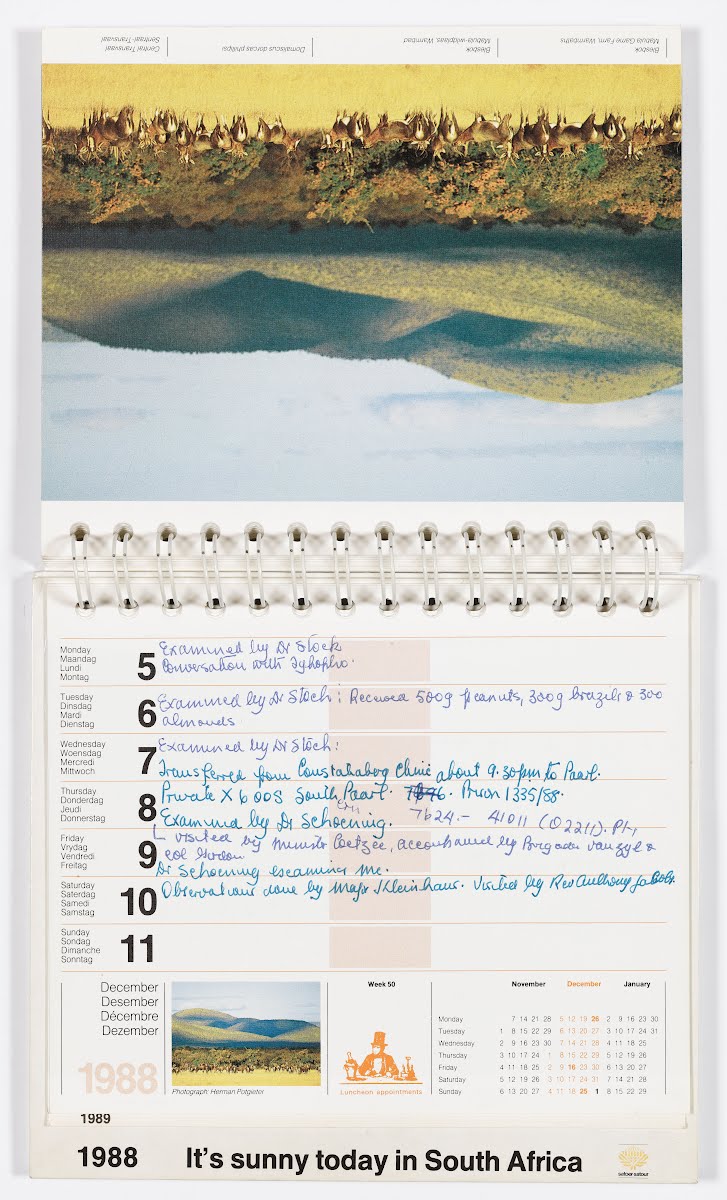 Blesbok
Mabula Game Farm, Warmbaths
Blesbok
Mabula-wildplaas, Warmbad
Damaliscus dorcas phillipsi
Central Transvaal
Sentraal-Transvaal
Monday
Maandag
Lundi
Montag
5
Examined by Dr Stock
Conversation with
Tuesday
Dinsdag
Mardi
Dienstag
6
Examined by Dr Stoch: Received 500g peanuts, 300g brazils & 300
almonds
Wednesday
Woensdag
Mercredi
Mittwoch
7
Examined by Dr Stoch:
Transferred from Constantiaberg Clinic about 9.30pm to Paarl.
Thursday
Donderdag
Jeudi
Donnerstag
8
Private X 6005 South Paarl. 7646. Prison 1335/88.
Examined by Dr Schoening. 7624.- 41011 (02211).
Friday
Vrydag
Vendredi
Freitag
9
visited by Minister Coetzee, accompanied by Brigadier van Zyl &
Dr Schoening examines me.
Saturday
Saterdag
Samedi
Samstag
10
Observations done by Major Kleinhaus. Visited by Rev Anthony
Sunday
Sondag
Dimanche
Sonntag
11
December
Desember
Décembre
Dezember
1988
Photograph: Herman Potgieter
Week 50
Luncheon appointments
November December January
Monday 7 14 21 28 5 12 19 26 2 9 16 23 30
Tuesday 1 8 15 22 29 6 13 20 27 3 10 17 24 31
Wednesday 2 9 16 23 30 7 14 21 28 4 11 18 25
Thursday 3 10 17 24 1 8 15 22 29 5 12 19 26
Friday 4 11 18 25 2 9 16 23 30 6 13 20 27
Saturday 5 12 19 26 3 10 17 24 31 7 14 21 28
Sunday 6 13 20 27 4 11 18 25 1 8 15 22 29
1989
1988 It's sunny today in South Africa
satoer·satour